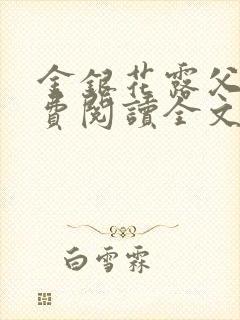 金銀花露父
費閱讀全文
白雪霖